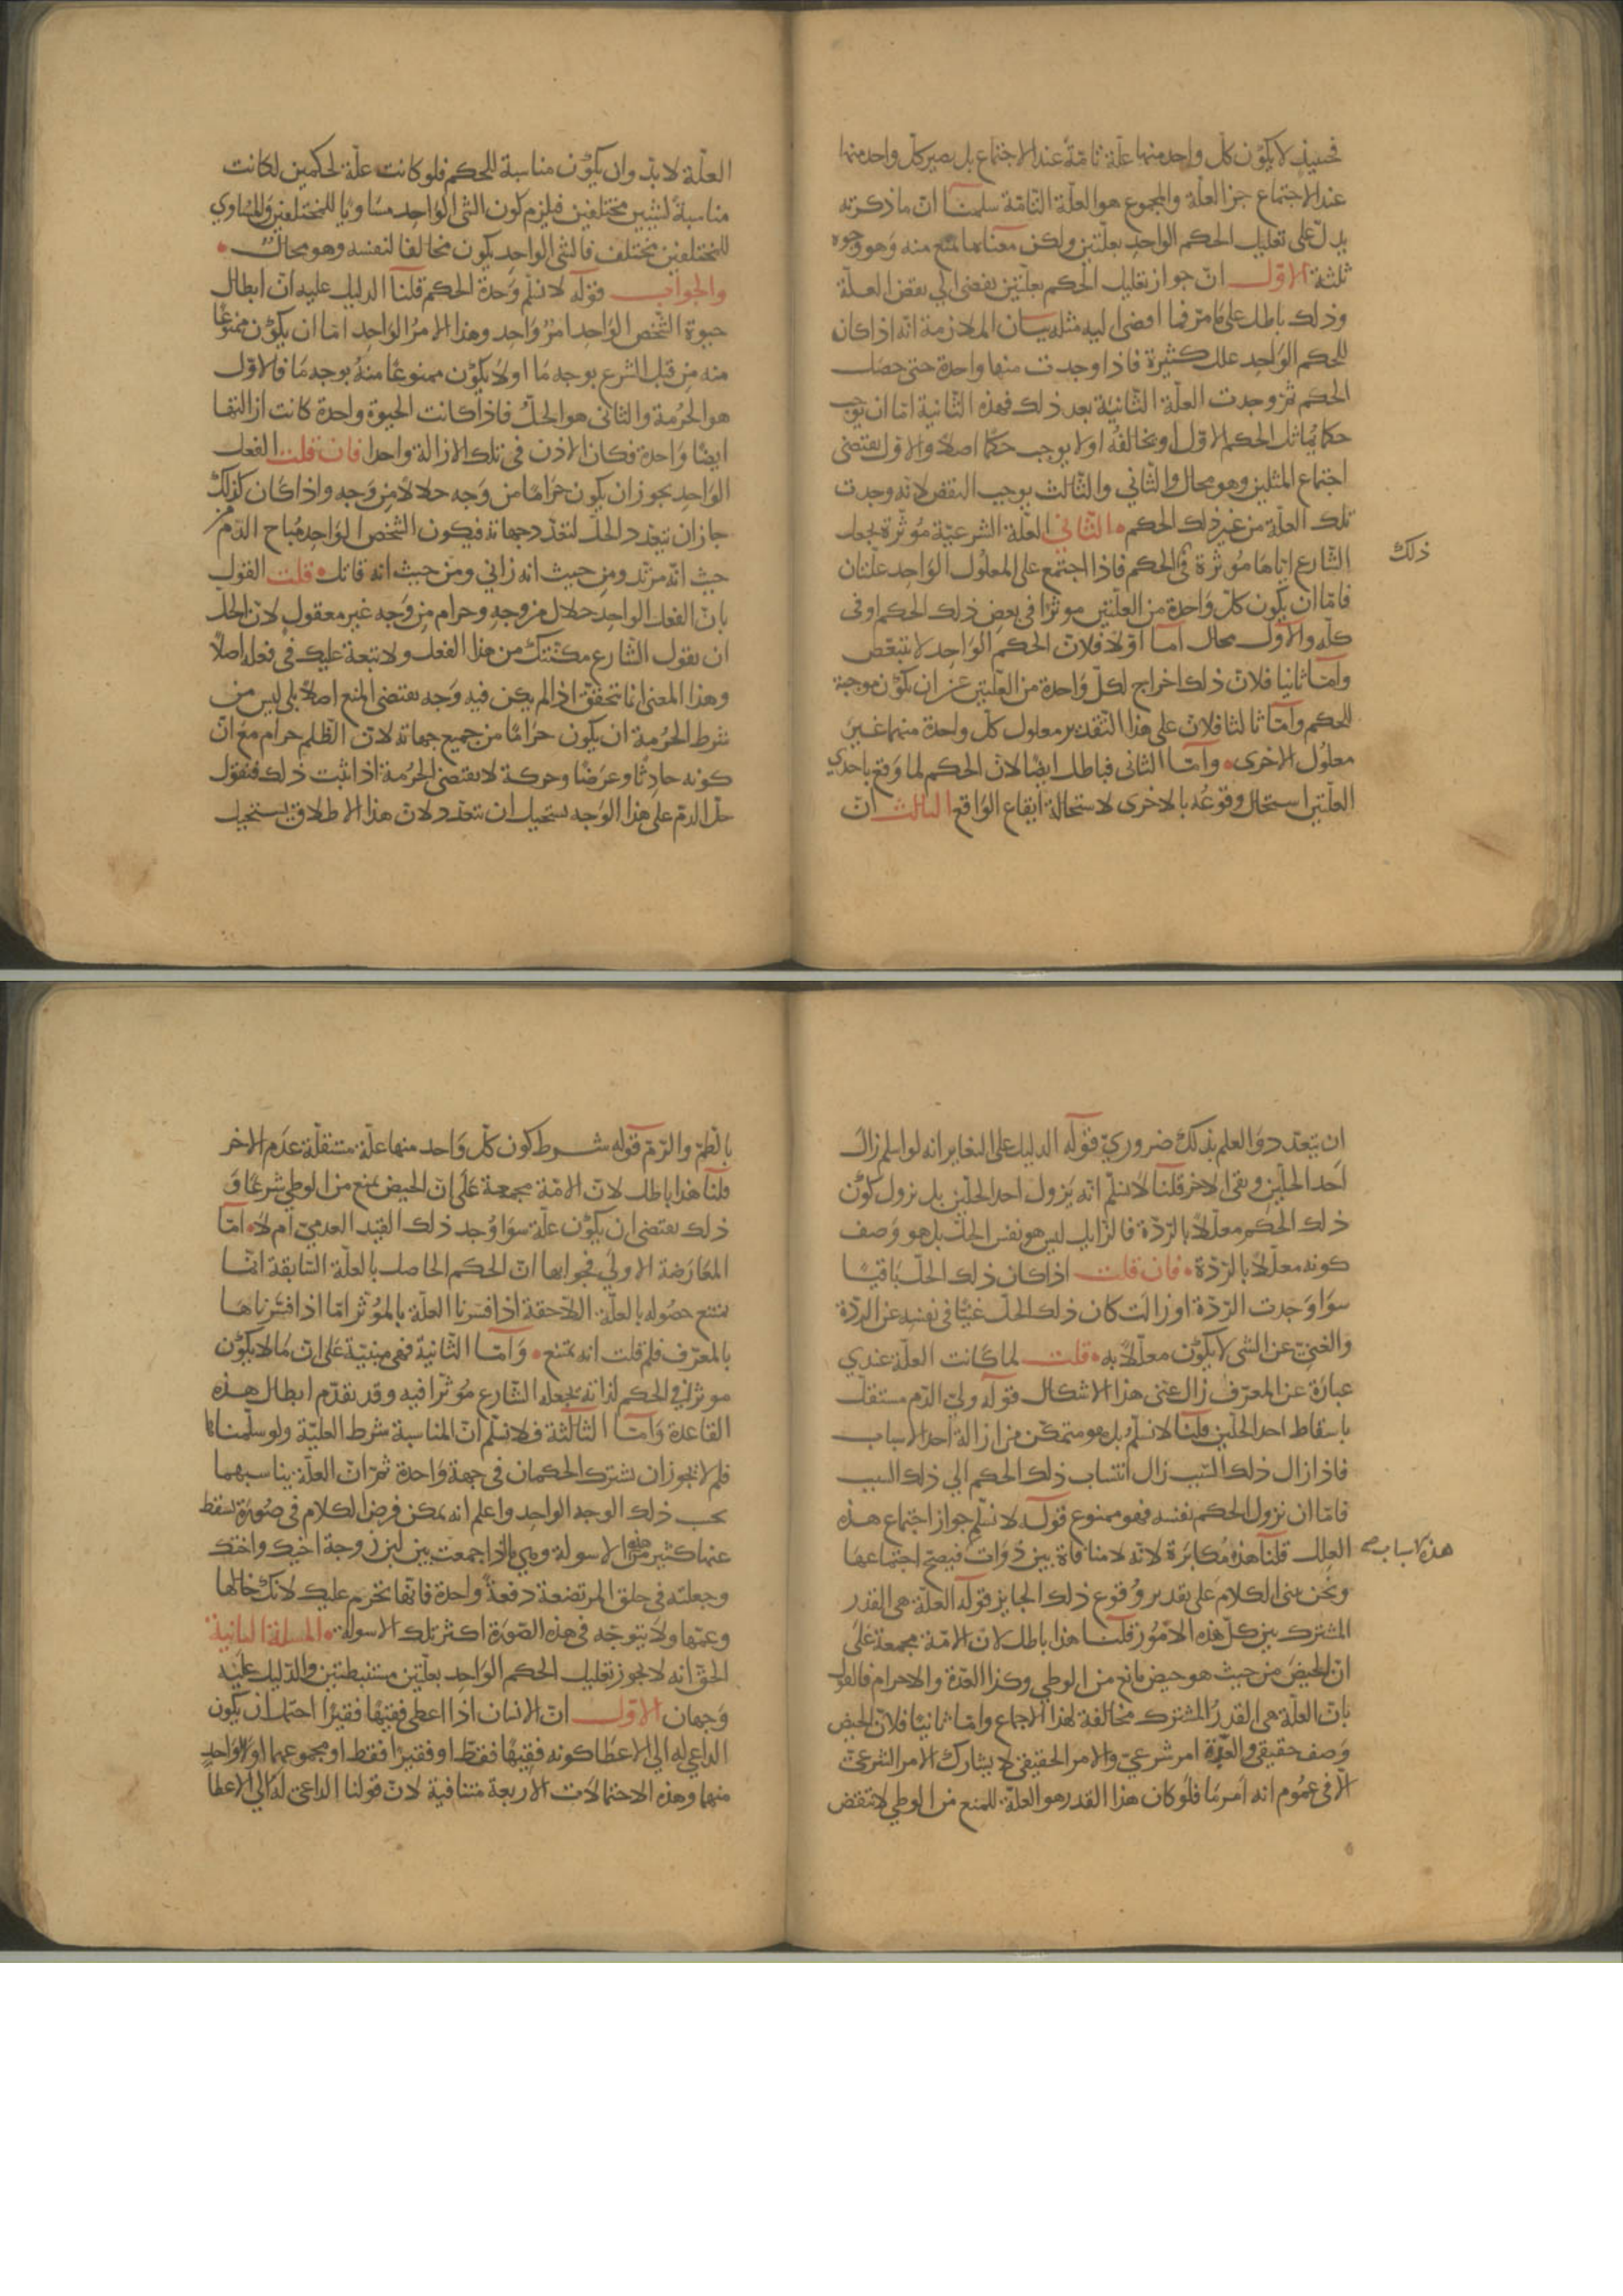 فحينئذ لا يكون كل واحد منها علّة تامّة عند الاجتماع بل يصير كل واحد منها
عند الاجتماع جزء العلة والمجموع هو العلّة التامّة سلمنا ان ما ذكرته
يدلّ على تعليل الحكم الواحد بعلّتين ولكن معنا ما يمنع منه وهو وجوه
ثلثة الاوّل انّ جواز تعليل الحكم بعلّتين يفضى الى نقض العلّة
وذلك باطل على ما مرّ فما افضى اليه مثله بيان الملازمة انّه اذا كان
للحكم الواحد علل كثيرة فاذا وجدت منها واحدة حتى حصل
الحكم ثمّ وجدت العلّة الثانية بعد ذلك فهذه الثانية امّا ان توجب
حكما يماثل الحكم الاوّل او يخالفه او لا يوجب حكما اصلا والاوّل يقتضى
اجتماع المثلين وهو محال والثاني والثالث يوجب النقض لانه وجدت
تلك العلّة من غير ذلك الحكم الثاني العلّة الشرعيّة مؤثّرة لجعل
الشارع اياها مؤثرة في الحكم فاذا اجتمع على المعلول الواحد علّتان
ذلك
فامّا ان يكون كلّ واحدة من العلّتين موثرا في بعض ذلك الحكم او في
كلّه والاوّل محال امّا اوّلا فلانّ الحكم الواحد لا يتبعّض
وامّا ثانيا فلانّ ذلك اخراج لكلّ واحدة من العلّتين عن ان تكون موجبة
للحكم وامّا ثالثا فلانّ على هذا التقدير معلول كلّ واحدة منهما غير
معلول الاخرى وامّا الثانى فباطل ايضا لانّ الحكم لما وقع باحدي
العلّتين استحال وقوعه بالاخرى لاستحالة ايقاع الواقع الثالث انّ
العلّة لا بدّ وان يكون مناسبة للحكم فلو كانت علّة لحكمين لكانت
مناسبة لشيين مختلفين فيلزم كون الشى الواحد مساويا للمختلفين والمساوي
للمختلفين مختلف فالشى الواحد يكون مخالفا لنفسه وهو محال
والجواب قوله لا نسلّم وحدة الحكم قلنا الدليل عليه انّ ابطال
حيوة الشخص الواحد امر واحد وهذا الامر الواحد امّا ان يكون ممنوعا
منه من قبل الشرع بوجه ما او لا يكون ممنوعا منه بوجه ما فالاوّل
هو الحرمة والثاني هو الحلّ فاذا كانت الحيوة واحدة كانت ازالتها
ايضا واحدة فكان الاذن في تلك الازالة واحدا فان قلت الفعل
الواحد يجوز ان يكون حراما من وجه حلالا من وجه واذا كان كذلك
جاز ان يتعدّد الحلّ لتعدّد جهاته فيكون الشخص الواحد مباح الدّم من
حيث انّه مرتدّ ومن حيث انه زاني ومن حيث انه قاتل قلت القول
بانّ الفعل الواحد حلال من وجه وحرام من وجه غير معقول لانّ الحلّ
ان يقول الشارع مكّنتك من هذا الفعل ولا تبعة عليك في فعله اصلا
وهذا المعنى انما تحقّق اذا لم يكن فيه وجه يقتضى المنع اصلا بلى ليس من
شرط الحرمة ان يكون حراما من جميع جهاته لانّ الظلم حرام مع انّ
كونه حادثا وعرضا وحركة لا يقتضى الحرمة اذا ثبت ذلك فنقول
حلّ الدم على هذا الوجه يستحيل ان يتعدّد لانّ هذا الاطلاق يستحيل
ان يتعدّد والعلم بذلك ضروريّ قوله الدليل على التغاير انه لو اسلم زال
احد الحلّين وبقى الاخر قلنا لا نسلّم انّه يزول احد الحلّين بل يزول كون
ذلك الحكم معلّلا بالردّة فالزايل ليس هو نفس الحلّ بل هو وصف
كونه معلّلا بالردّة فان قلت اذا كان ذلك الحلّ باقيا
سوا وجدت الردّة او زالت كان ذلك الحلّ غنيّا في نفسه عن الردّة
والغنىّ عن الشى لا يكون معلّلا به قلت لما كانت العلّة عندي
عبارة عن المعرّف زال عنّى هذا الاشكال قوله ولىّ الدّم مستقلّ
باسقاط احد الحلّين قلنا لا نسلّم بل هو متمكّن من ازالة احد الاسباب
فاذا زال ذلك السّبب زال انتساب ذلك الحكم الى ذلك السبب
فامّا ان يزول الحكم نفسه فهو ممنوع قوله لا نسلّم جواز اجتماع هذه
العلل قلنا هذه مكابرة لانّه لا منافاة بين ذوات فيصحّ اجتماعها
هذه الاسباب صح
ونحن نبنى الكلام على تقدير وقوع ذلك الجايز قوله العلّة هى القدر
المشترك بين كلّ هذه الامور قلنا هذا باطل لانّ الامّة مجمعة على
انّ الحيض من حيث هو حيض مانع من الوطي وكذا العدّة والاحرام فالقول
بانّ العلّة هى القدر المشترك مخالفة لهذا الاجماع وامّا ثانيا فلانّ الحيض
وصف حقيقي والعدّة امر شرعيّ والامر الحقيقي لا يشارك الامر الشرعيّ
الّا في عموم انه امر ما فلو كان هذا القدر هو العلّة للمنع من الوطي لانتقض
بالطمّ والرّمّ قوله شرط كون كلّ واحد منها علّة مستقلّة عدم الاخر
قلنا هذا باطل لانّ الامّة مجمعة على انّ الحيض يمنع من الوطي شرعا و
ذلك يقتضى ان يكون علّة سوا وجد ذلك القيد العدميّ ام لا امّا
المعارضة الاولى فجوابها انّ الحكم الحاصل بالعلّة السّابقة انما
يمتنع حصوله بالعلّة اللاحقة اذا فسّرنا العلّة بالمؤثّر امّا اذا فسّرناها
بالمعرّف فلم قلت انه يمتنع وامّا الثّانية فهى مبنيّة على انّ ما لا يكون
موثرا في الحكم لذاته يجعله الشارع موثرا فيه وقد تقدّم ابطال هذه
القاعدة وامّا الثالثة فلا نسلّم انّ المناسبة شرط العليّة ولو سلّمناها
فلم لا يجوز ان يشترك الحكمان في جهة واحدة ثمّ انّ العلّة يناسبهما
بحسب ذلك الوجه الواحد واعلم انه يمكن فرض الكلام في صورة يسقط
عنها كثير من هذه الاسولة وهي ما اذا جمعت بين لبن زوجة اخيك واختك
وجعلته في حلق المرتضعة دفعة واحدة فانّها تحرم عليك لانك خالها
وعمّها ولا يتوجّه في هذه الصّورة اكثر تلك الاسولة المسلة الثانية
الحقّ انه لا يجوز تعليل الحكم الواحد بعلّتين مستنبطتين والدّليل عليه
وجهان الاوّل انّ الانسان اذا اعطى فقيها فقيرا احتمل ان يكون
الداعي له الى الاعطا كونه فقيها فقط او فقيرا فقط او مجموعهما او لا واحد
منهما وهذه الاحتمالات الاربعة متنافية لانّ قولنا الداعى له الى الاعطا